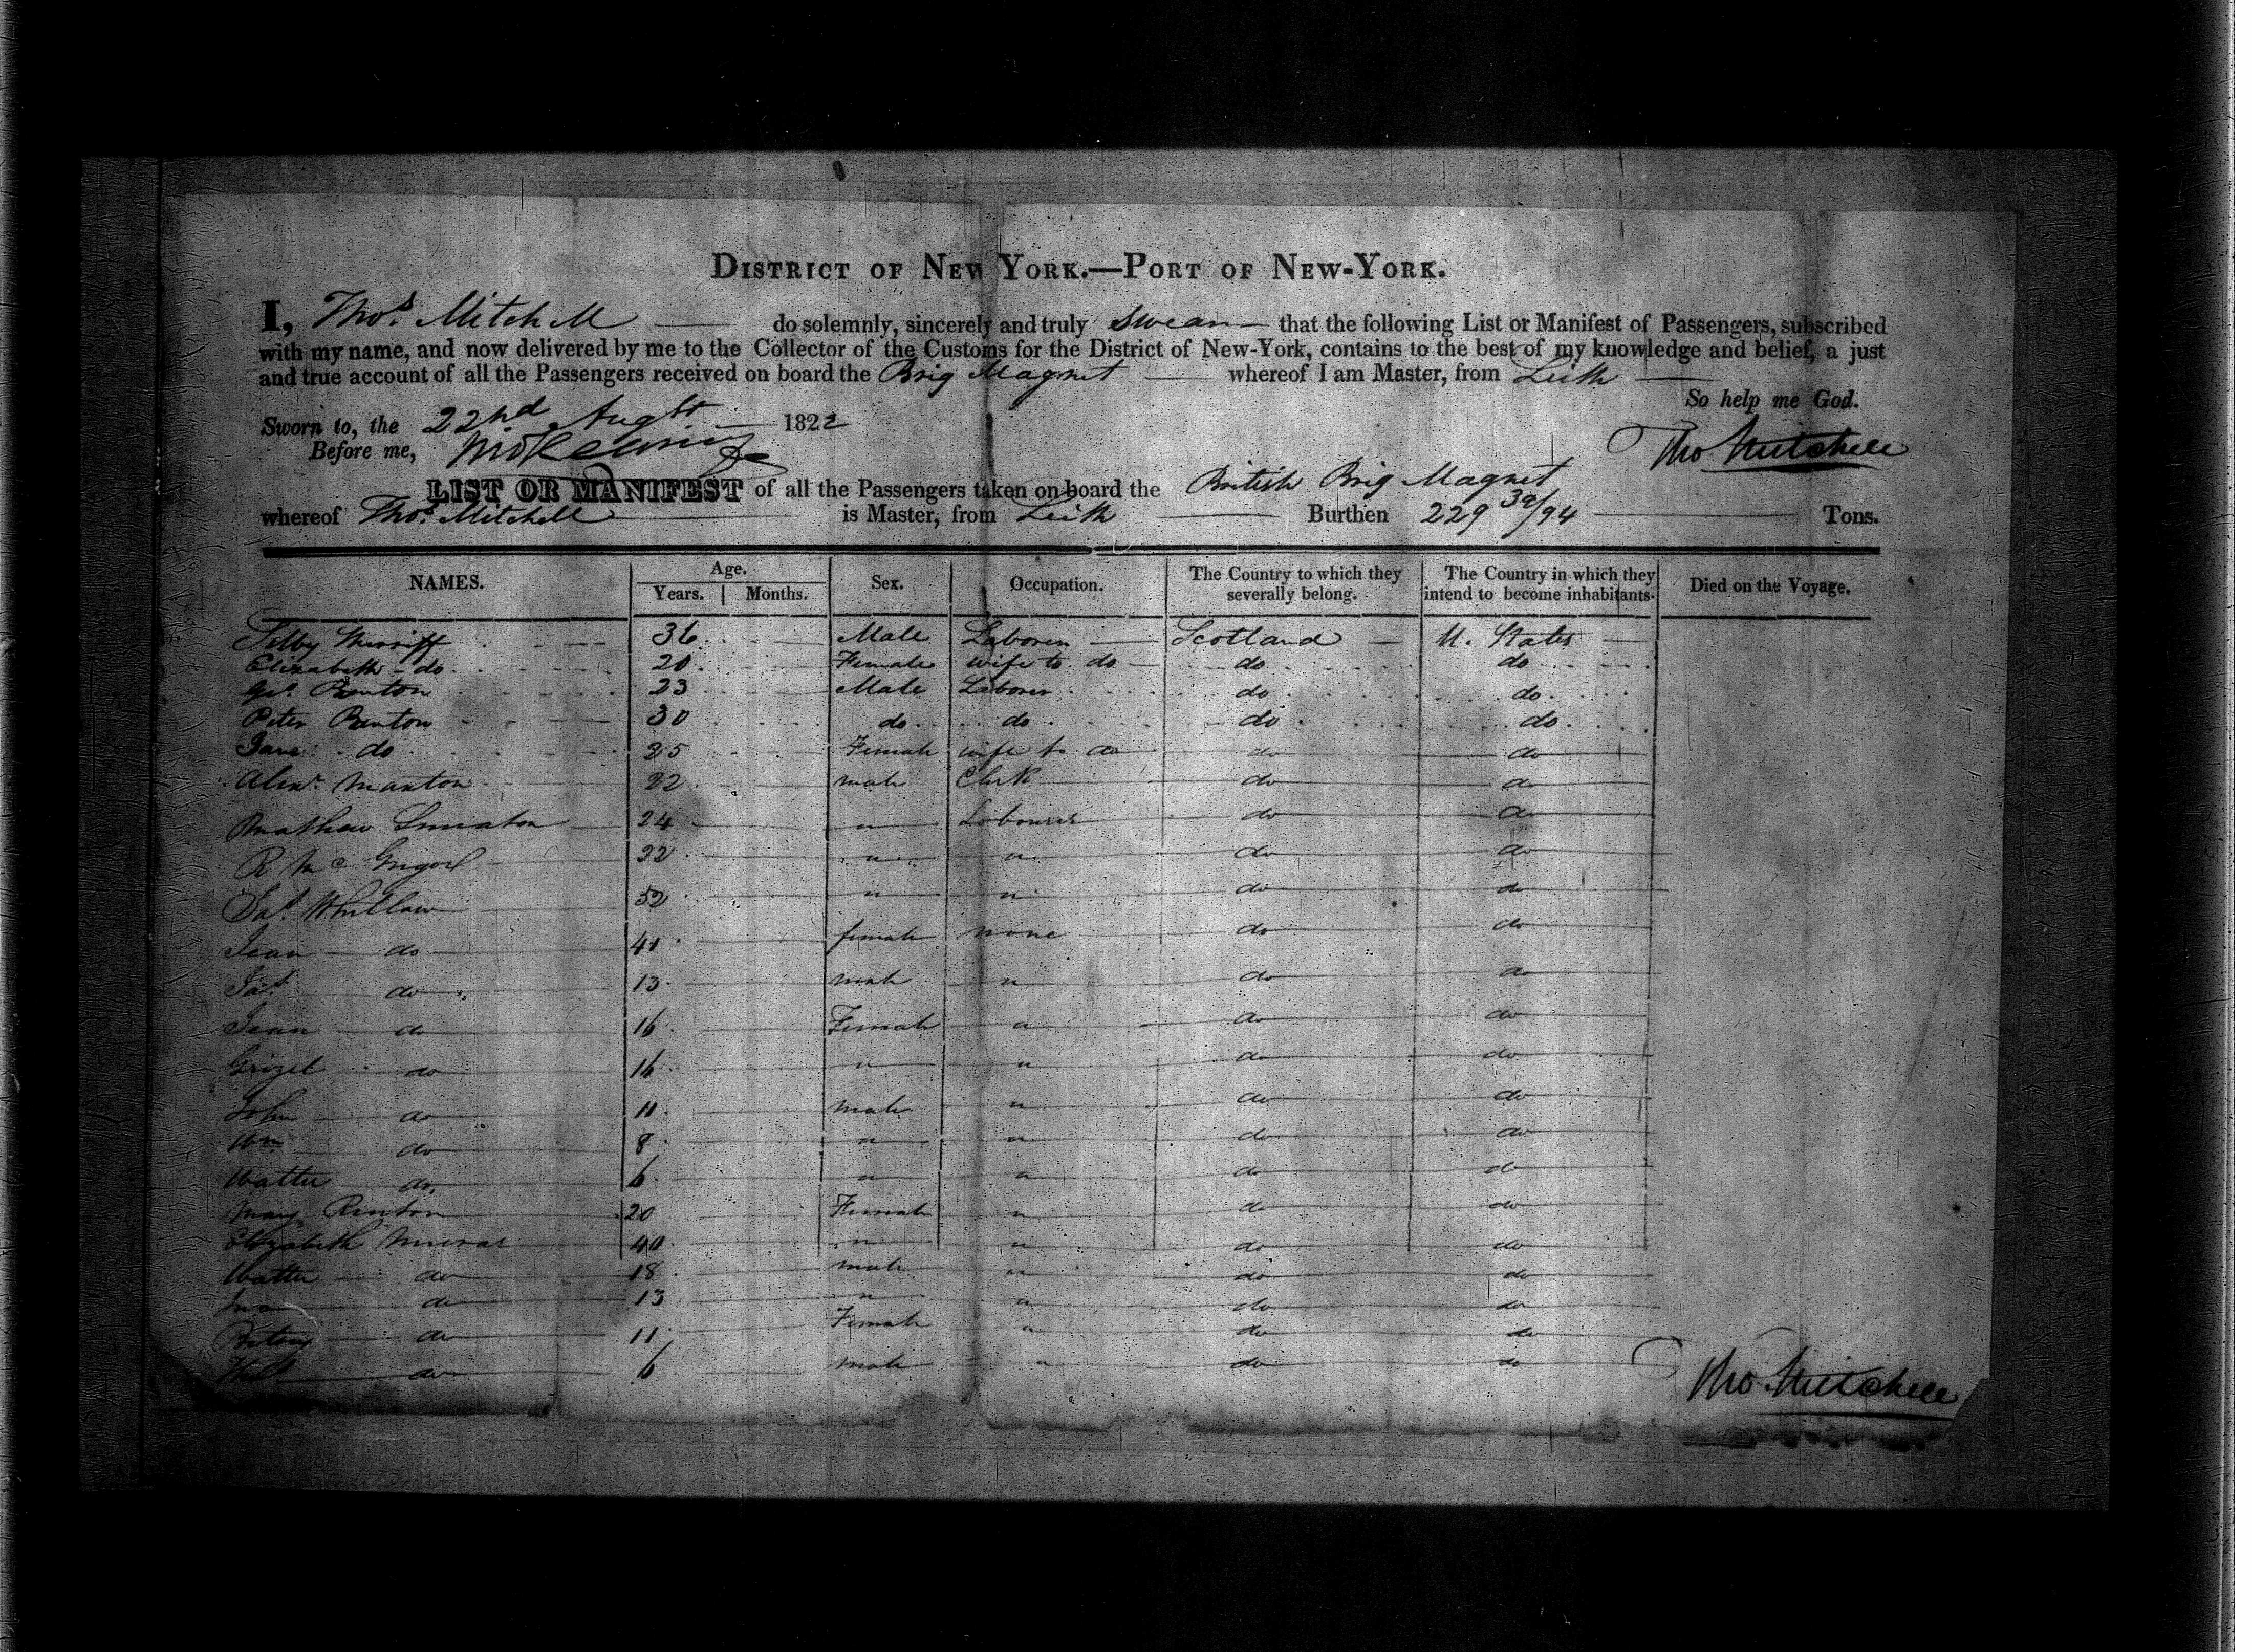 DISTRICT OF NEW YORK.—PORT OF NEW-YORK.
I, Thos. Mitchell do solemnly, sincerely and truly swear that the following List or Manifest of Passengers, subscribed
with my name, and now delivered by me to the Collector of the Customs for the District of New-York, contains to the best of my knowledge and belief, a just
and true account of all the Passengers received on board the Brig Magnet whereof I am Master, from Leith
So help me God.
Sworn to, the 22nd Augst 1822
Before me,
Tho Mitchell
LIST OR MANIFEST of all the Passengers taken on board the British Brig Magnet
whereof Thos. Mitchell is Master, from Leith Burthen 229 39/94 Tons.
NAMES. Age. Years. Months. Sex. Occupation. The Country to which they severally belong. The Country in which they intend to become inhabitants. Died on the Voyage.
Selby 36 Male Laborer Scotland U. States
Elizabeth do 20 Female wife to do do do
Geo. Renton 23 Male Laborer do do
Peter Renton 30 do do do do
Jane do 25 Female wife to do do do
Alexr. Manton 22 male Clerk do do
Mathew Smeaton 24 " Labourer do do
R Mc Gregor 32 " " do do
Jas. Whitlaw 52 " " do do
Jean do 41 female none do do
Jas. do 13 male " do do
Jean do 16 Female " do do
Grizel do 16 " " do do
John do 11 male " do do
Wm do 8 " " do do
Walter do 6 " " do do
Mary Renton 20 Female " do do
Elizabeth 40 " " do do
Walter do 18 male " do do
do 13 " " do do
do 11 Female " do do
do 6 male " do do
Tho. Mitchell